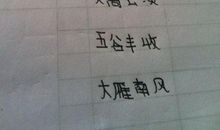 五谷丰收
大雁南风